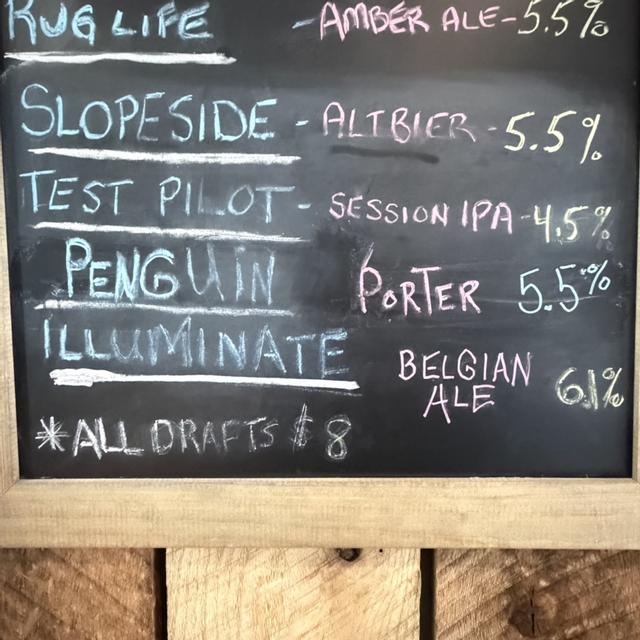 RUG LIFE - AMBER ALE - 5.5%
SLOPESIDE - ALTBIER - 5.5%
TEST PILOT - SESSION IPA - 4.5%
PENGUIN PORTER 5.5%
ILLUMINATE BELGIAN ALE 6.1%
*ALL DRAFTS $8